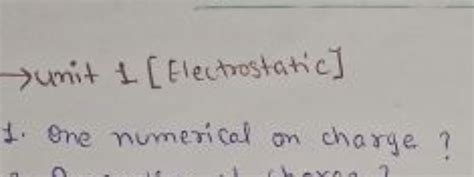 →unit 1 [Electrostatic]
1. One numerical on charge ?